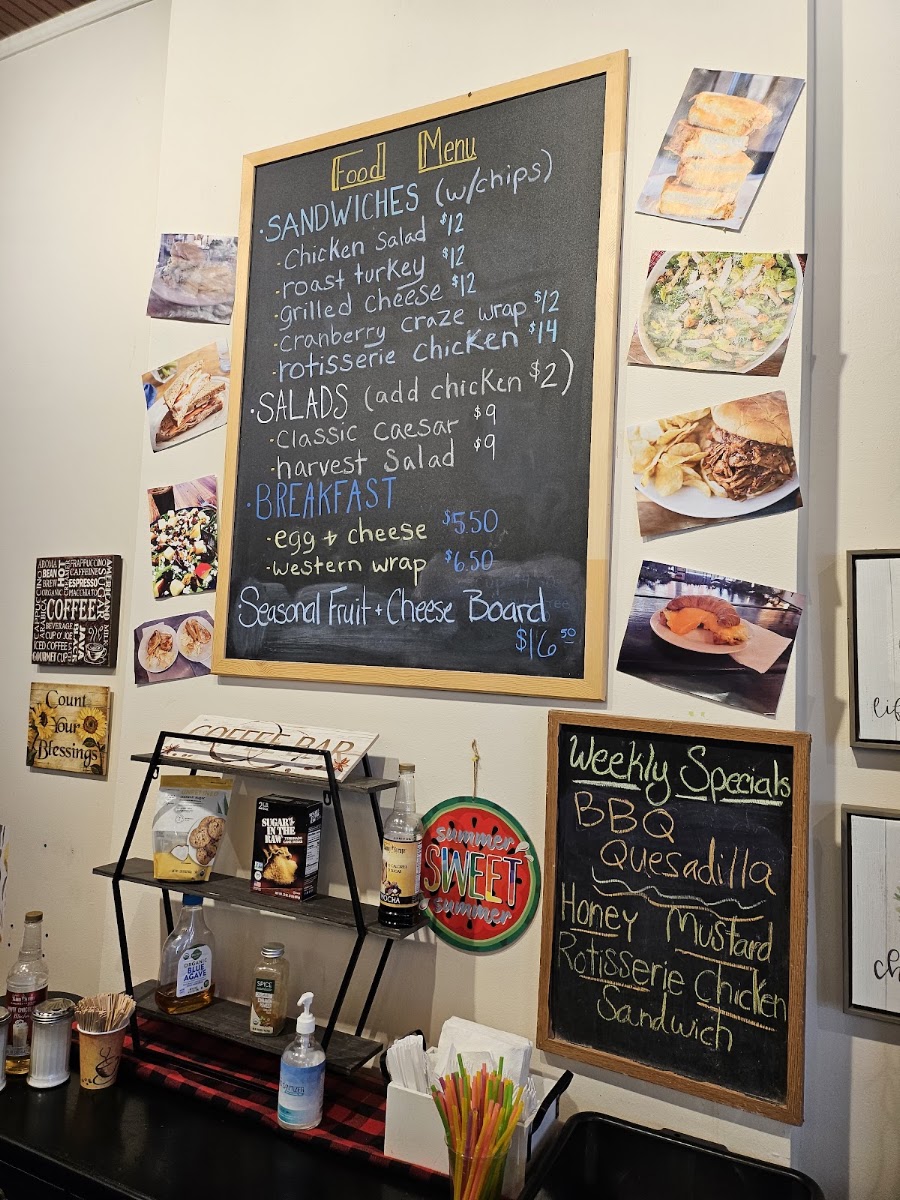 Food Menu
• SANDWICHES (w/chips)
- Chicken Salad $12
- roast turkey $12
- grilled cheese $12
- cranberry craze wrap $12
- rotisserie chicken $14
• SALADS (add chicken $2)
- classic caesar $9
- harvest salad $9
• BREAKFAST
- egg + cheese $5.50
- western wrap $6.50
Seasonal Fruit + Cheese Board
$16.50
Weekly Specials
BBQ
Quesadilla
Honey Mustard
Rotisserie Chicken
Sandwich
AROMA
BEAN
BREW
ORGANIC
CAPPUCCINO
FRAPPUCCINO
CAFFEINE
ESPRESSO
MACCHIATO
COFFEE
BEVERAGE
CUP O' JOE
ICED COFFEE
GOURMET CUP
JAVA
AMERICANO
Count
Your
Blessings
COFFEE BAR
2LB
SUGAR
IN THE
RAW
MOCHA
summer
SWEET
summer
ORGANIC
BLUE
AGAVE
SPICE